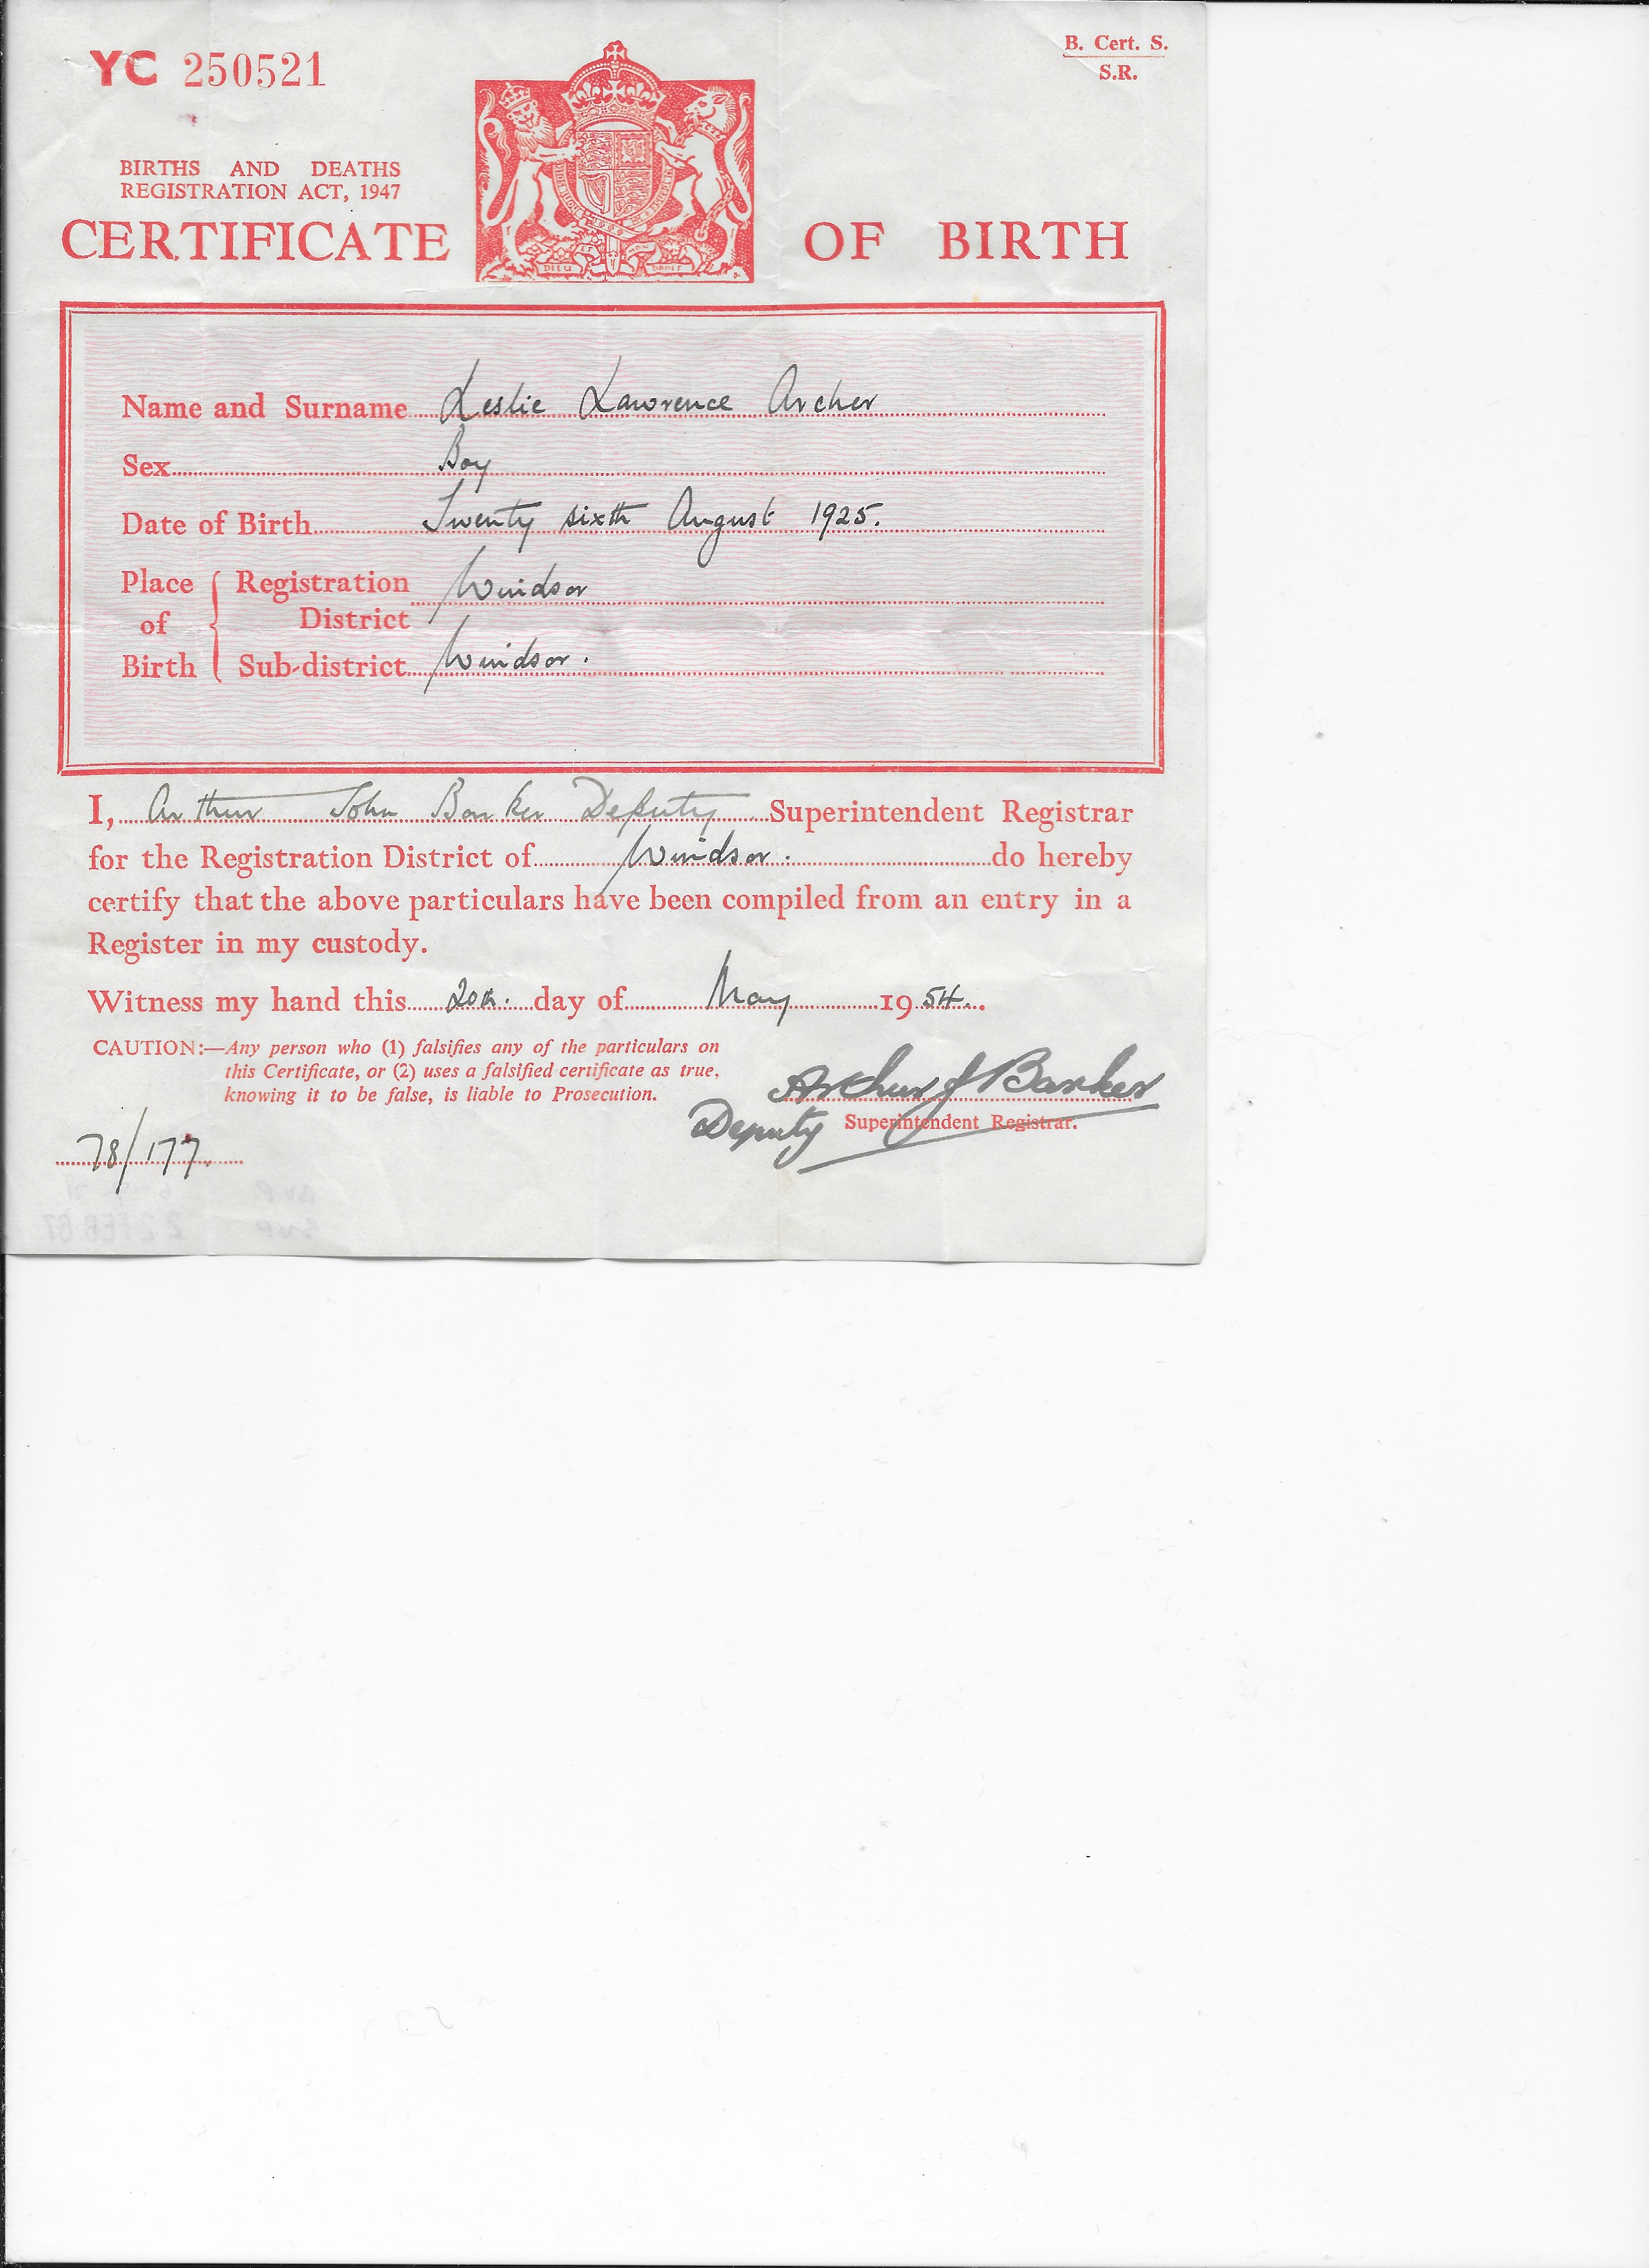 YC 250521
B. Cert. S.
S.R.
BIRTHS AND DEATHS
REGISTRATION ACT, 1947
CERTIFICATE OF BIRTH
DIEU DROIT
Name and Surname Leslie Lawrence Archer
Sex Boy
Date of Birth Twenty sixth August 1925.
Place of Birth { Registration District Windsor
Sub-district Windsor.
I, Arthur John Barker Deputy Superintendent Registrar
for the Registration District of Windsor. do hereby
certify that the above particulars have been compiled from an entry in a
Register in my custody.
Witness my hand this 20th. day of May 1954.
CAUTION:—Any person who (1) falsifies any of the particulars on
this Certificate, or (2) uses a falsified certificate as true,
knowing it to be false, is liable to Prosecution.
Arthur J Barker
Deputy Superintendent Registrar.
78/177.